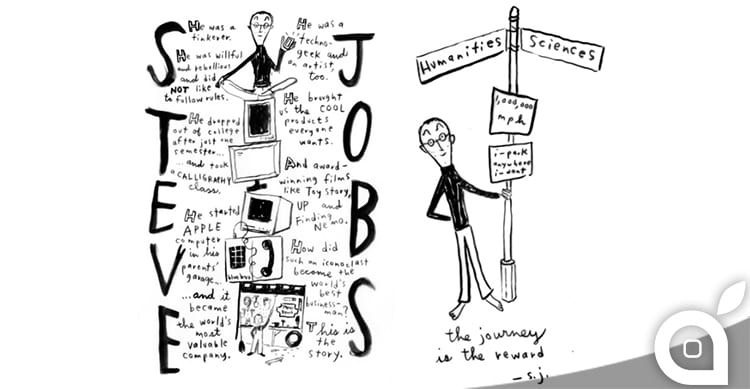 STEVE
JOBS
He was a
tinkerer.
He was willful
and rebellious
and did
NOT like
to follow rules.
He dropped
out of college
after just one
semester...
...and took
a CALLIGRAPHY
class.
He started
APPLE
computer
in his
parents'
garage...
...and it
became
the world's
most
valuable
company.
He was a
techno-
geek and
an artist,
too.
He brought
us the COOL
products
everyone
wants.
And award-
winning films
like Toy Story,
UP and
Finding
Nemo.
How did
such an iconoclast
become the
world's
best
business-
man?
This is
the
story.
blue box
Humanities
Sciences
1,000,000
mph
i-park
anywhere
i-want
the journey
is the reward
—s.j.